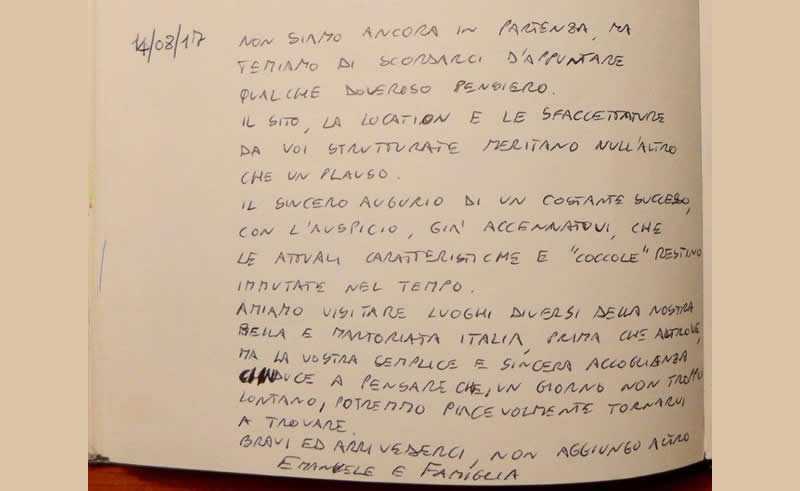 14/08/17 NON SIAMO ANCORA IN PARTENZA, MA
TEMIAMO DI SCORDARCI D'APPUNTARE
QUALCHE DOVEROSO PENSIERO.
IL SITO, LA LOCATION E LE SFACCETTATURE
DA VOI STRUTTURATE MERITANO NULL'ALTRO
CHE UN PLAUSO.
IL SINCERO AUGURIO DI UN COSTANTE SUCCESSO,
CON L'AUSPICIO, GIA' ACCENNATOVI, CHE
LE ATTUALI CARATTERISTICHE E "COCCOLE" RESTINO
IMMUTATE NEL TEMPO.
AMIAMO VISITARE LUOGHI DIVERSI DELLA NOSTRA
BELLA E MARTORIATA ITALIA, PRIMA CHE ALTROVE,
MA LA VOSTRA SEMPLICE E SINCERA ACCOGLIENZA
CI INDUCE A PENSARE CHE, UN GIORNO NON TROPPO
LONTANO, POTREMMO PIACEVOLMENTE TORNARVI
A TROVARE.
BRAVI ED ARRIVEDERCI, NON AGGIUNGO ALTRO
EMANUELE E FAMIGLIA